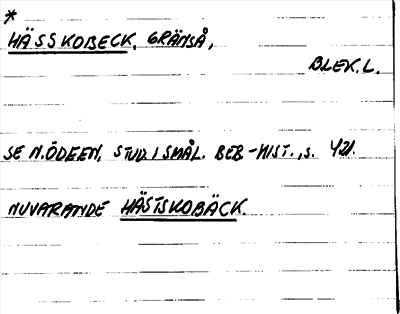 *
HÄSSKOBECK, GRÄNSÅ,
BLEK. L.
SE N. ÖDEEN, STUD. I SMÅL. BEB-HIST., S. 421.
NUVARANDE HÄSTSKOBÄCK.